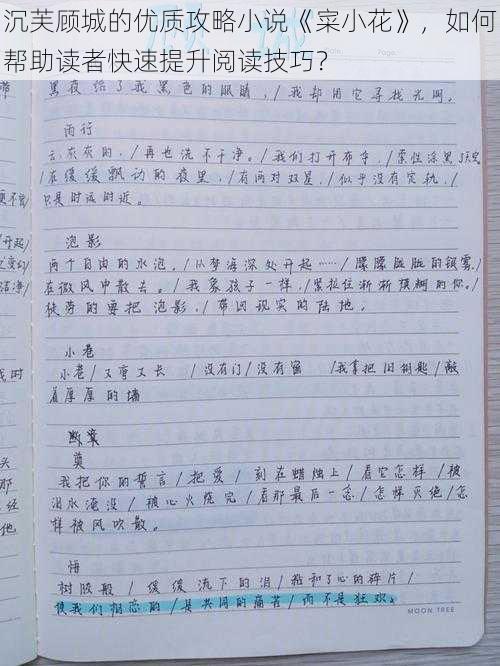 沉芙顾城的优质攻略小说《寀小花》，如何
帮助读者快速提升阅读技巧？
顾城
黑夜给了我黑色的眼睛，/我却用它寻找光明。
雨行
云，灰灰的，/再也洗不干净。/我们打开雨伞，/索性涂黑了天空。
/在缓缓飘动的夜里，/有两对双星，/似乎没有定轨，/
只是时远时近。
泡影
两个自由的水泡，/从梦海深处升起……/朦朦胧胧的银雾，/
在微风中散去。/我象孩子一样，/紧拉住渐渐模糊的你。/
徒劳的要把泡影，/带回现实的陆地。
小巷
小巷/又弯又长 /没有门/没有窗 /我拿把旧钥匙/敲
着厚厚的墙
奠
我把你的誓言/把爱/刻在蜡烛上/看它怎样/被
泪水淹没/被心火烧完/看那最后一念/怎样灭绝/怎
样被风吹散。
悔
树胶般/缓缓流下的泪/粘和了心的碎片/
使我们相恋的/是共同的痛苦/而不是狂欢。
MOON TREE